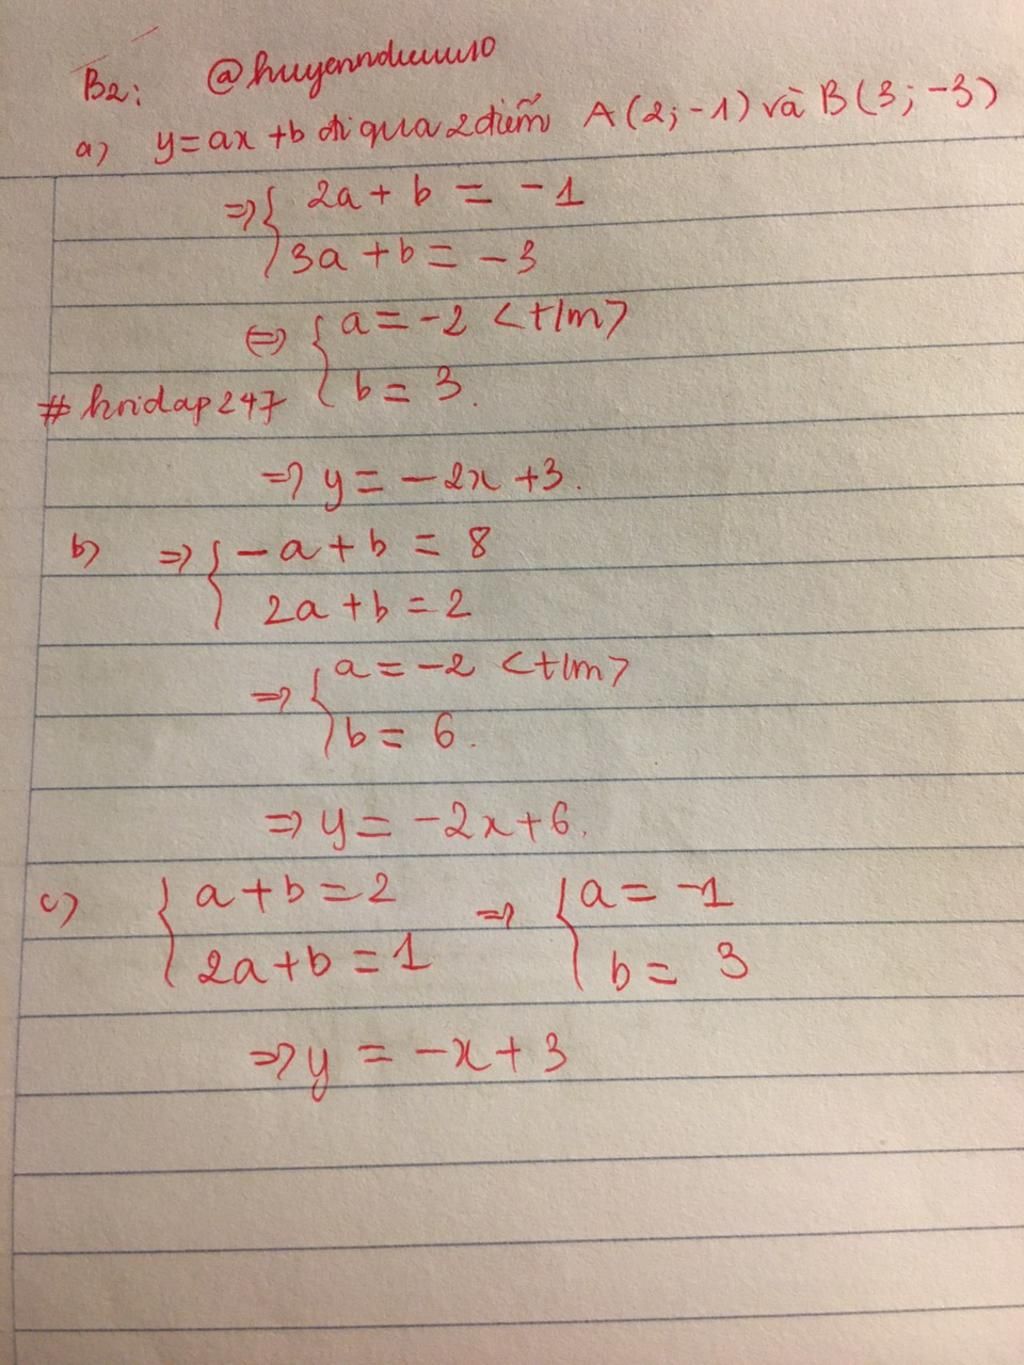 B2: @huyenndieuuu10
a) y=ax+b đi qua 2 điểm A(2;-1) và B(3;-3)
=> { 2a+b = -1
3a+b = -3
<=> { a=-2 <t/m>
b= 3.
#hoidap247
=> y= -2x+3.
b) => { -a+b = 8
2a+b=2
=> { a=-2 <t/m>
b= 6.
=> y= -2x+6.
c) { a+b=2 => { a= -1
2a+b=1 b= 3
=> y = -x+3